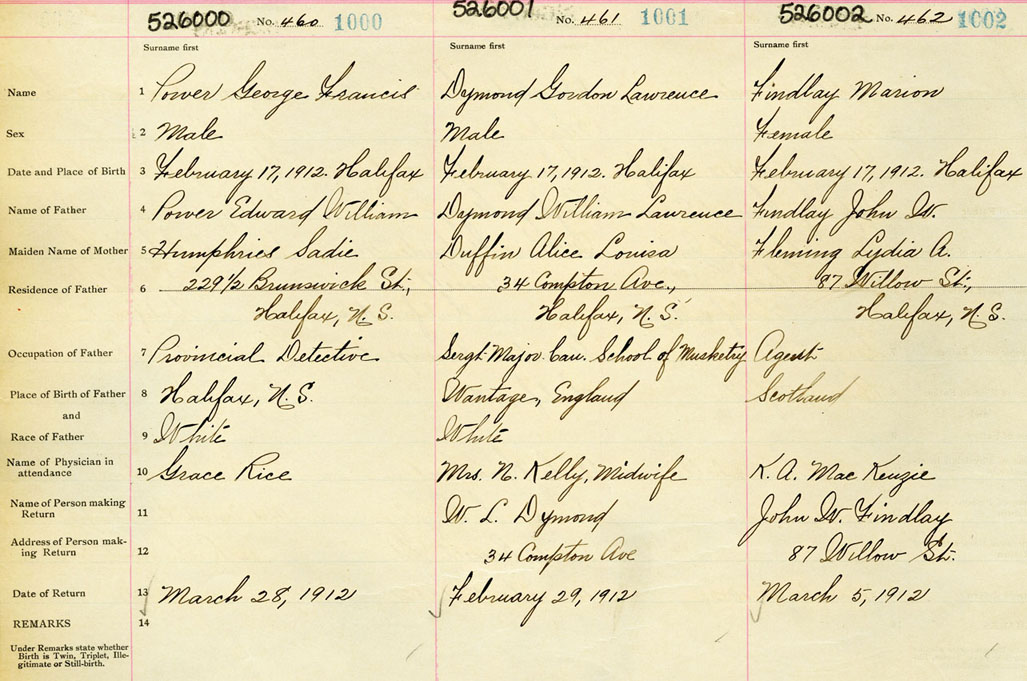 526000 No. 460 1000 526001 No. 461 1001 526002 No. 462 1002
Surname first Surname first Surname first
Name 1 Power George Francis Dymond Gordon Lawrence Findlay Marion
Sex 2 Male Male Female
Date and Place of Birth 3 February 17, 1912. Halifax February 17, 1912. Halifax February 17, 1912. Halifax
Name of Father 4 Power Edward William Dymond William Lawrence Findlay John W.
Maiden Name of Mother 5 Humphries Sadie Duffin Alice Louisa Fleming Lydia A.
Residence of Father 6 229½ Brunswick St., 34 Compton Ave., 87 Willow St.,
Halifax, N.S. Halifax, N.S. Halifax, N.S.
Occupation of Father 7 Provincial Detective Sergt. Major Can. School of Musketry Agent
Place of Birth of Father 8 Halifax, N.S. Wantage, England Scotland
and
Race of Father 9 White White
Name of Physician in
attendance 10 Grace Rice Mrs. N. Kelly, Midwife K. A. Mac Kenzie
Name of Person making
Return 11 W. L. Dymond John W. Findlay
Address of Person mak-
ing Return 12 34 Compton Ave 87 Willow St.
Date of Return 13 March 28, 1912 February 29, 1912 March 5, 1912
REMARKS 14
Under Remarks state whether
Birth is Twin, Triplet, Ille-
gitimate or Still-birth.